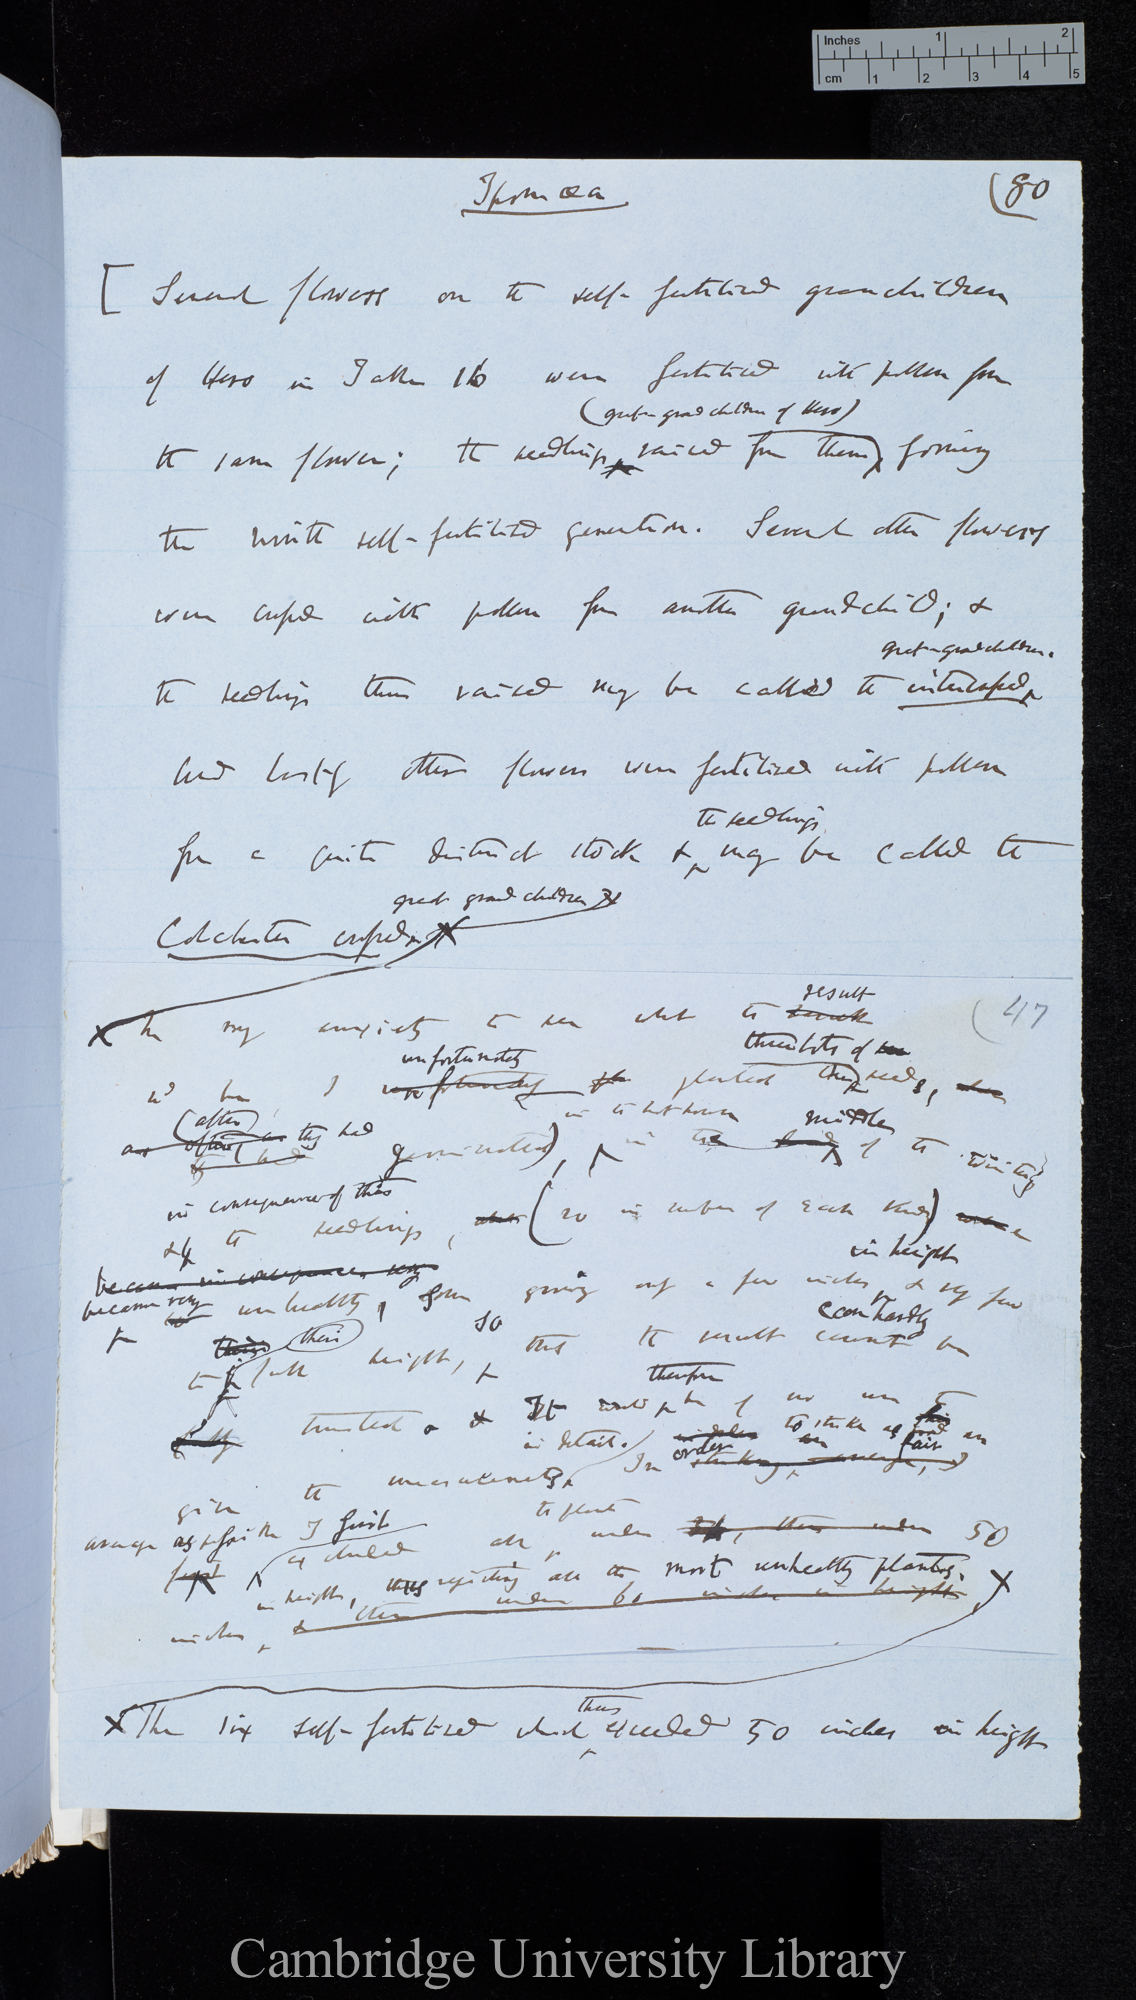 Inches 1 2
cm 1 2 3 4 5
Ipomœa
(80
[Several flowers on the self-fertilised grandchildren
of Hero in Table 16 were fertilised with pollen from
(great-grandchildren of Hero)
the same flower; the seedlings raised from them, forming
the ninth self-fertilised generation. Several other flowers
were crossed with pollen from another grandchild; &
great-grandchildren.
the seedlings thus raised may be called the intercrossed
And lastly other flowers were fertilised with pollen
the seedlings
from a quite distinct stock & may be called the
great grandchildren X
Colchester crossed. X
result
(47
X In my anxiety to see what the result
unfortunately three lots of
would be I unfortunately planted the seeds,
in the hot-house middle
(after) as they had germinated), in the of the winter,
in consequence of this
& the seedlings, (20 in number of each kind)
in height
became in consequence very
became very unhealthy, some growing only a few inches & very few
can hardly
their so
to full height, that the result cannot be
therefore
trusted. & It would be of no use to
in detail. to strike as fair an
order
give the measurements. In striking average,
average as possible I first
to plants
excluded all under 50
in height, thus rejecting all the most unhealthy plants. X
inches, & then under 60 inches in height
thus
X The six self-fertilised which exceeded 50 inches in height
Cambridge University Library